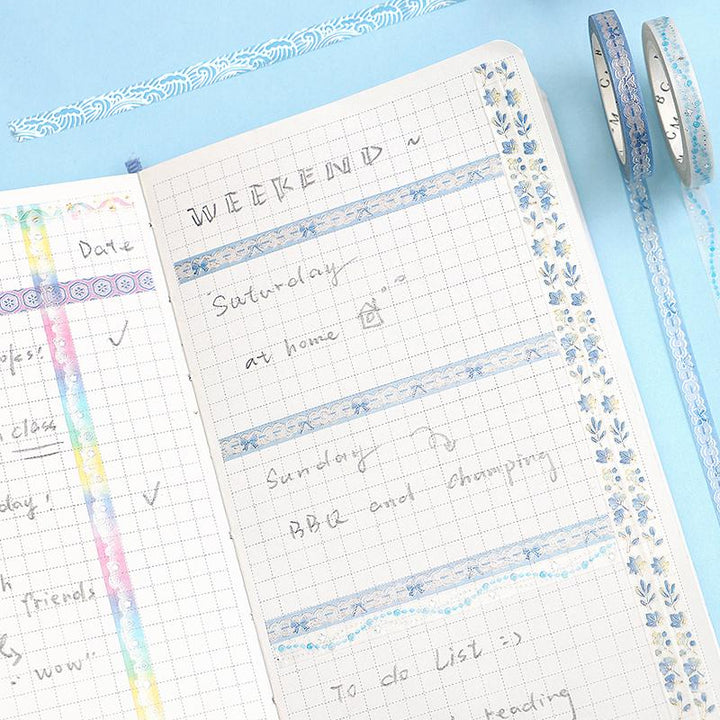 Date
class
day!
friends
"wow"
WEEKEND ~
Saturday
at home
Sunday
BBQ and champing
To do List =>
reading